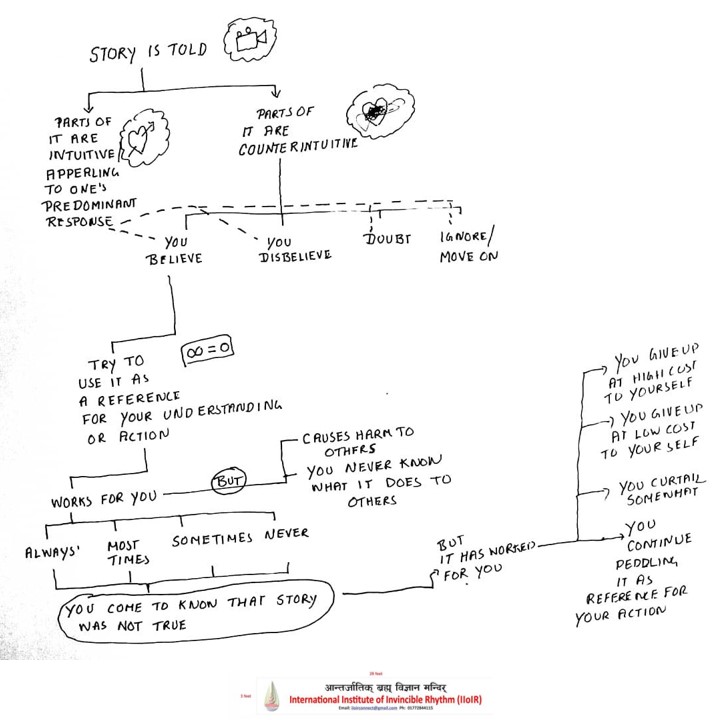 STORY IS TOLD
PARTS OF
IT ARE
INTUITIVE
APPERLING
TO ONE'S
PREDOMINANT
RESPONSE
PARTS OF
IT ARE
COUNTERINTUITIVE
YOU
BELIEVE
YOU
DISBELIEVE
DOUBT
IGNORE/
MOVE ON
TRY TO
USE IT AS
A REFERENCE
FOR YOUR UNDERSTANDING
OR ACTION
∞ = 0
WORKS FOR YOU
BUT
CAUSES HARM TO
OTHERS
YOU NEVER KNOW
WHAT IT DOES TO
OTHERS
ALWAYS'
MOST
TIMES
SOMETIMES
NEVER
YOU COME TO KNOW THAT STORY
WAS NOT TRUE
BUT
IT HAS WORKED
FOR YOU
YOU GIVE UP
AT HIGH COST
TO YOURSELF
YOU GIVE UP
AT LOW COST
TO YOUR SELF
YOU CURTAIL
SOMEWHAT
YOU
CONTINUE
PEDDLING
IT AS
REFERENCE FOR
YOUR ACTION
आन्तर्जातिक् ब्रह्म विज्ञान मन्दिर्
International Institute of Invincible Rhythm (IIoIR)